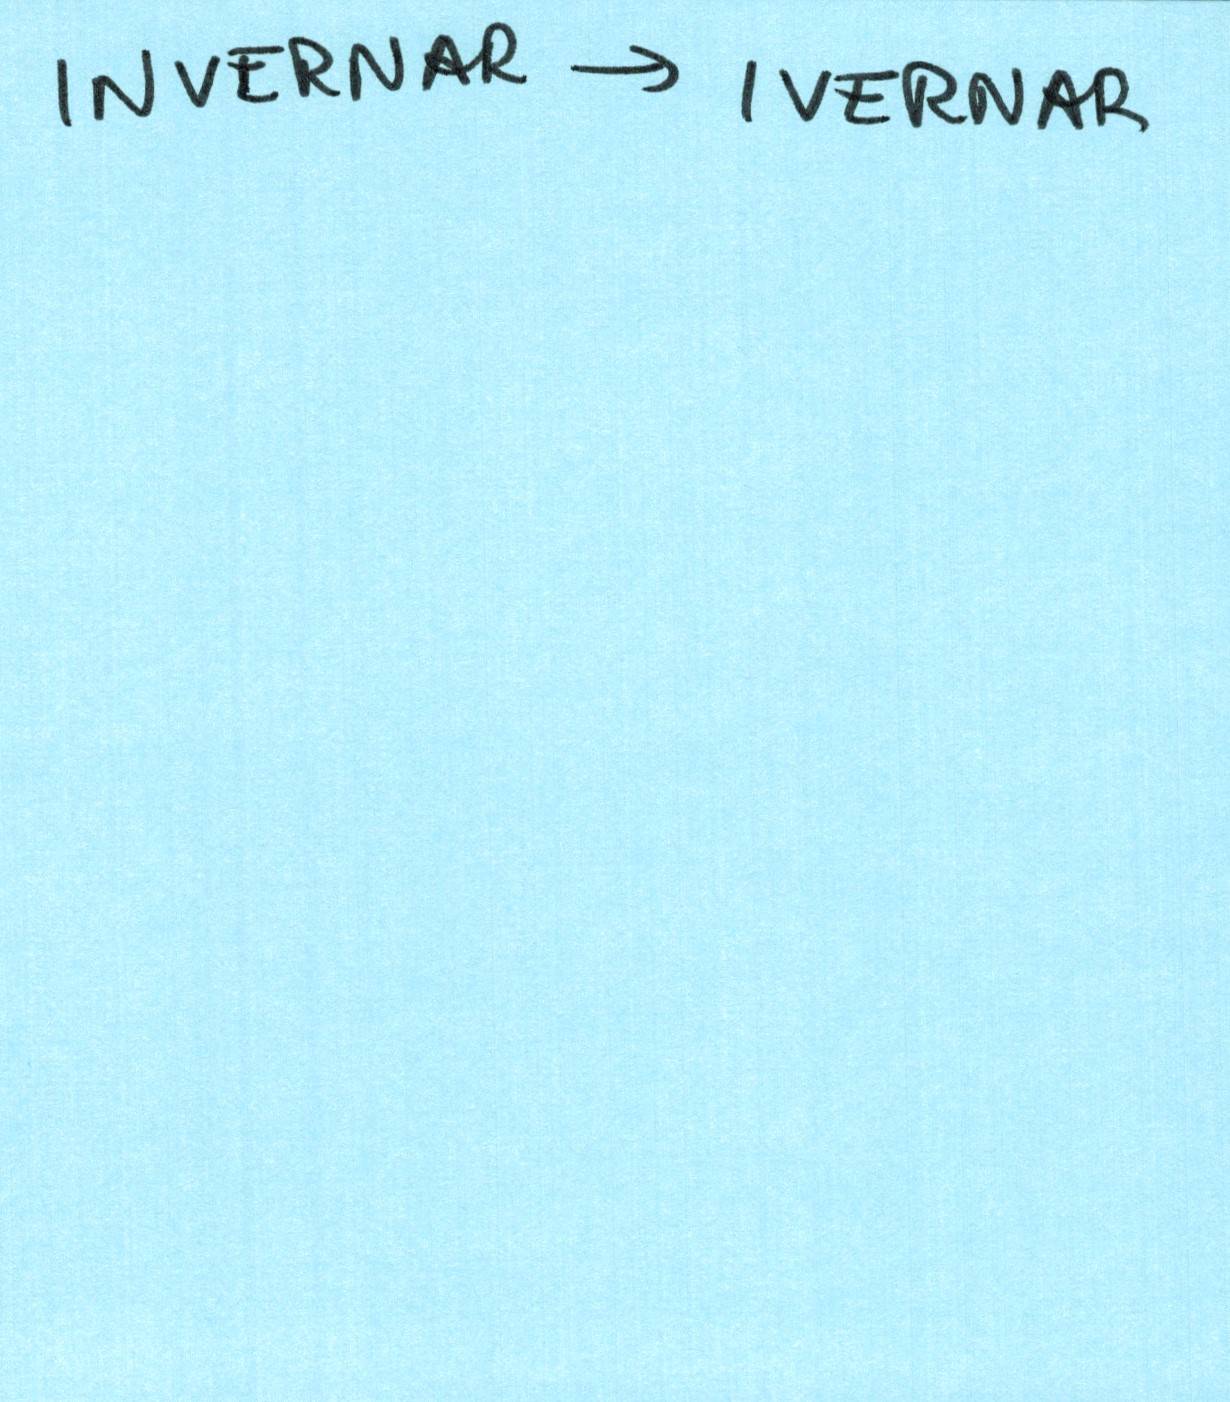 INVERNAR → IVERNAR